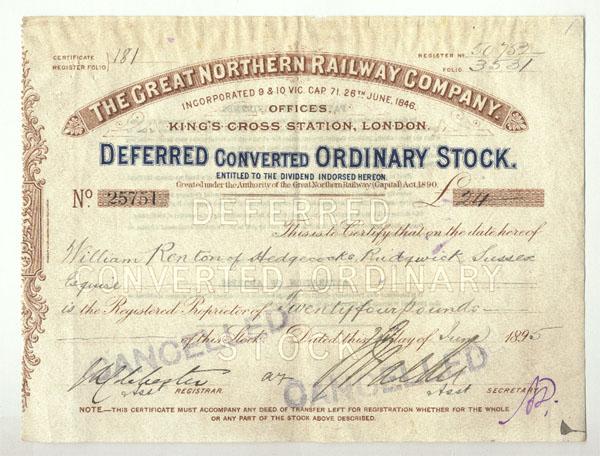 CERTIFICATE
REGISTER FOLIO } 181
REGISTER No. 50763
FOLIO 3531
THE GREAT NORTHERN RAILWAY COMPANY.
INCORPORATED 9 & 10 VIC. CAP 71. 26TH JUNE, 1846.
OFFICES,
KING'S CROSS STATION, LONDON.
DEFERRED CONVERTED ORDINARY STOCK.
ENTITLED TO THE DIVIDEND INDORSED HEREON.
Created under the Authority of the Great Northern Railway (Capital) Act, 1890.
No 25751 £ 24
DEFERRED
This is to Certify that on the date hereof
William Renton of Hedgecocks Rudgwick Sussex
CONVERTED ORDINARY
Esquire
is the Registered Proprietor of Twenty four Pounds
of this Stock. Dated this day of June 1895
STOCK
CANCELLED
CANCELLED
Asst REGISTRAR. Asst SECRETARY
NOTE.—THIS CERTIFICATE MUST ACCOMPANY ANY DEED OF TRANSFER LEFT FOR REGISTRATION WHETHER FOR THE WHOLE
OR ANY PART OF THE STOCK ABOVE DESCRIBED.